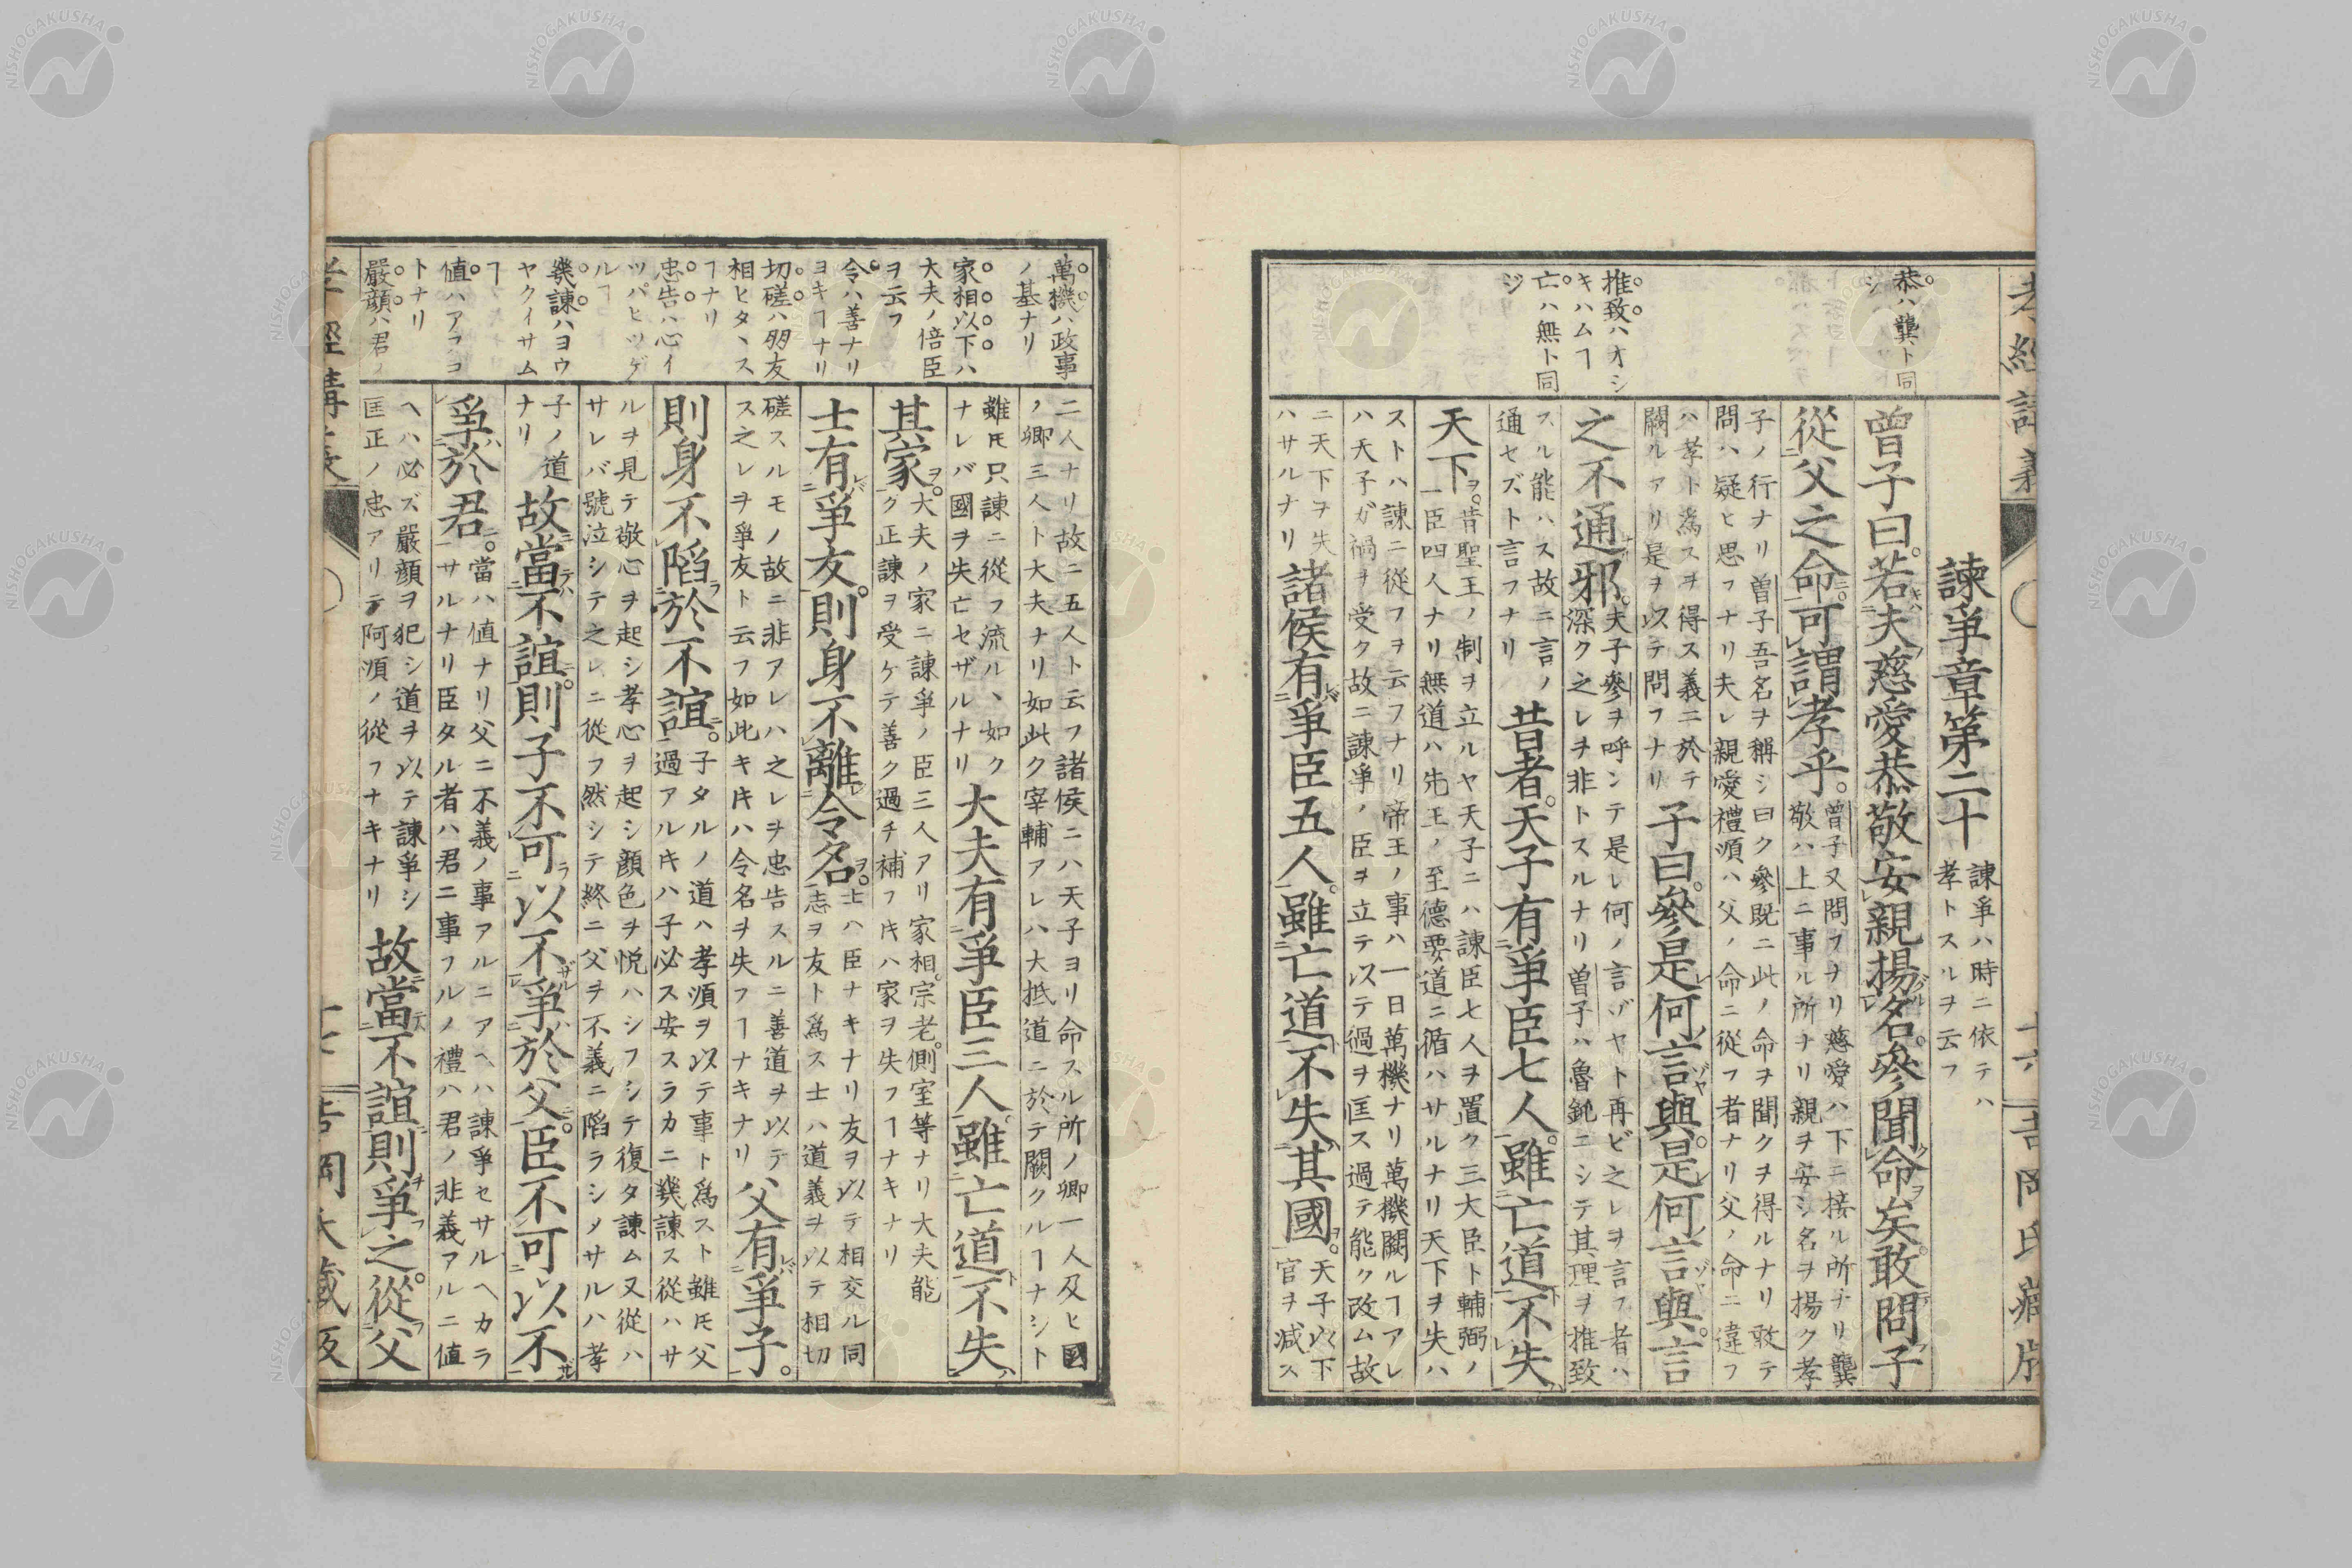 諫爭章第二十 諫爭ハ時ニ依テハ
孝トスルヲ云フ
曾子曰。若夫慈愛恭敬安親揚名。參聞命矣。敢問子
從父之命。可謂孝乎。 曾子又問フヲリ慈愛ハ下ニ接ル所ナリ龔
敬ハ上ニ事ル所ナリ親ヲ安シ名ヲ揚ク孝
子ノ行ナリ曽子吾名ヲ稱シ曰ク參既ニ此ノ命ヲ聞クヲ得ルナリ敢テ
問ハ疑ヒ思フナリ夫レ親愛禮順ハ父ノ命ニ從フ者ナリ父ノ命ニ違フ
ハ孝ト爲スヲ得ス義ニ於テ
闕ルアリ是ヲ以テ問フナリ 子曰。參是何言與。是何言與。言
之不通邪。 夫子參ヲ呼ンテ是レ何ノ言ゾヤト再ビ之レヲ言フ者ハ
深ク之レヲ非トスルナリ曽子ハ魯鈍ニシテ其理ヲ推致
スル能ハス故ニ言ノ
通セズト言フナリ 昔者。天子有爭臣七人。雖亡道不失
天下。 昔聖王ノ制ヲ立ルヤ天子ニハ諫臣七人ヲ置ク三大臣ト輔弼ノ
臣四人ナリ無道ハ先王ノ至德要道ニ循ハサルナリ天下ヲ失ハ
ストハ諫ニ從フヲ云フナリ帝王ノ事ハ一日萬機ナリ萬機闕ルヿアレ
ハ天子ガ禍ヲ受ク故ニ諫爭ノ臣ヲ立テ以テ過ヲ匡ス過テ能ク改ム故
ニ天下ヲ失
ハサルナリ 諸侯有爭臣五人。雖亡道不失其國。 天子以下
官ヲ減ス
恭ハ龔ト同
シ
推致ハオシ
キハムヿ
亡ハ無ト同
ジ
二人ナリ故ニ五人ト云フ諸侯ニハ天子ヨリ命スル所ノ卿一人及ヒ國
ノ卿三人ト大夫ナリ如此ク宰輔アレハ大抵道ニ於テ闕クルヿナシト
雖𪜈只諫ニ從フ流ルヽ如ク
ナレバ國ヲ失亡セザルナリ 大夫有爭臣三人。雖亡道不失
其家。 大夫ノ家ニ諫爭ノ臣三人アリ家相。宗老。側室等ナリ大夫能
ク正諫ヲ受ケテ善ク過チ補フ𪜈ハ家ヲ失フヿナキナリ
士有爭友。則身不離令名。 士ハ臣ナキナリ友ヲ以テ相交ル同
志ヲ友ト爲ス士ハ道義ヲ以テ相切
磋スルモノ故ニ非アレハ之レヲ忠告スルニ善道ヲ以テ
ス之レヲ爭友ト云フ如此キ𪜈ハ令名ヲ失フヿナキナリ 父有爭子。
則身不陷於不誼。 子タルノ道ハ孝順ヲ以テ事ト爲スト雖𪜈父
過アル𪜈ハ子必ス安スラカニ幾諫ス從ハサ
ルヲ見テ敬心ヲ起シ孝心ヲ起シ顏色ヲ悦ハシフシテ復タ諫ム又從ハ
サレバ號泣シテ之レニ從フ然シテ終ニ父ヲ不義ニ陷ラシメサルハ孝
子ノ道
ナリ 故當不誼。則子不可以不爭於父。臣不可以不
爭於君。 當ハ値ナリ父ニ不義ノ事アルニアヘハ諫爭セサルヘカラ
サルナリ臣タル者ハ君ニ事フルノ禮ハ君ノ非義アルニ値
ヘハ必ズ嚴顏ヲ犯シ道ヲ以テ諫爭シ
匡正ノ忠アリテ阿順ノ從フナキナリ 故當不誼則爭之。從父
萬機ハ政事
ノ基ナリ
家相以下ハ
大夫ノ倍臣
ヲ云フ
令ハ善ナリ
ヨキヿナリ
切磋ハ朋友
相ヒタヽス
ヿナリ
忠告ハ心イ
ツパヒツゲ
ルヿ
幾諫ハヨウ
ヤクイサム
ヿ
値ハアフヿ
トナリ
嚴顏ハ君ノ